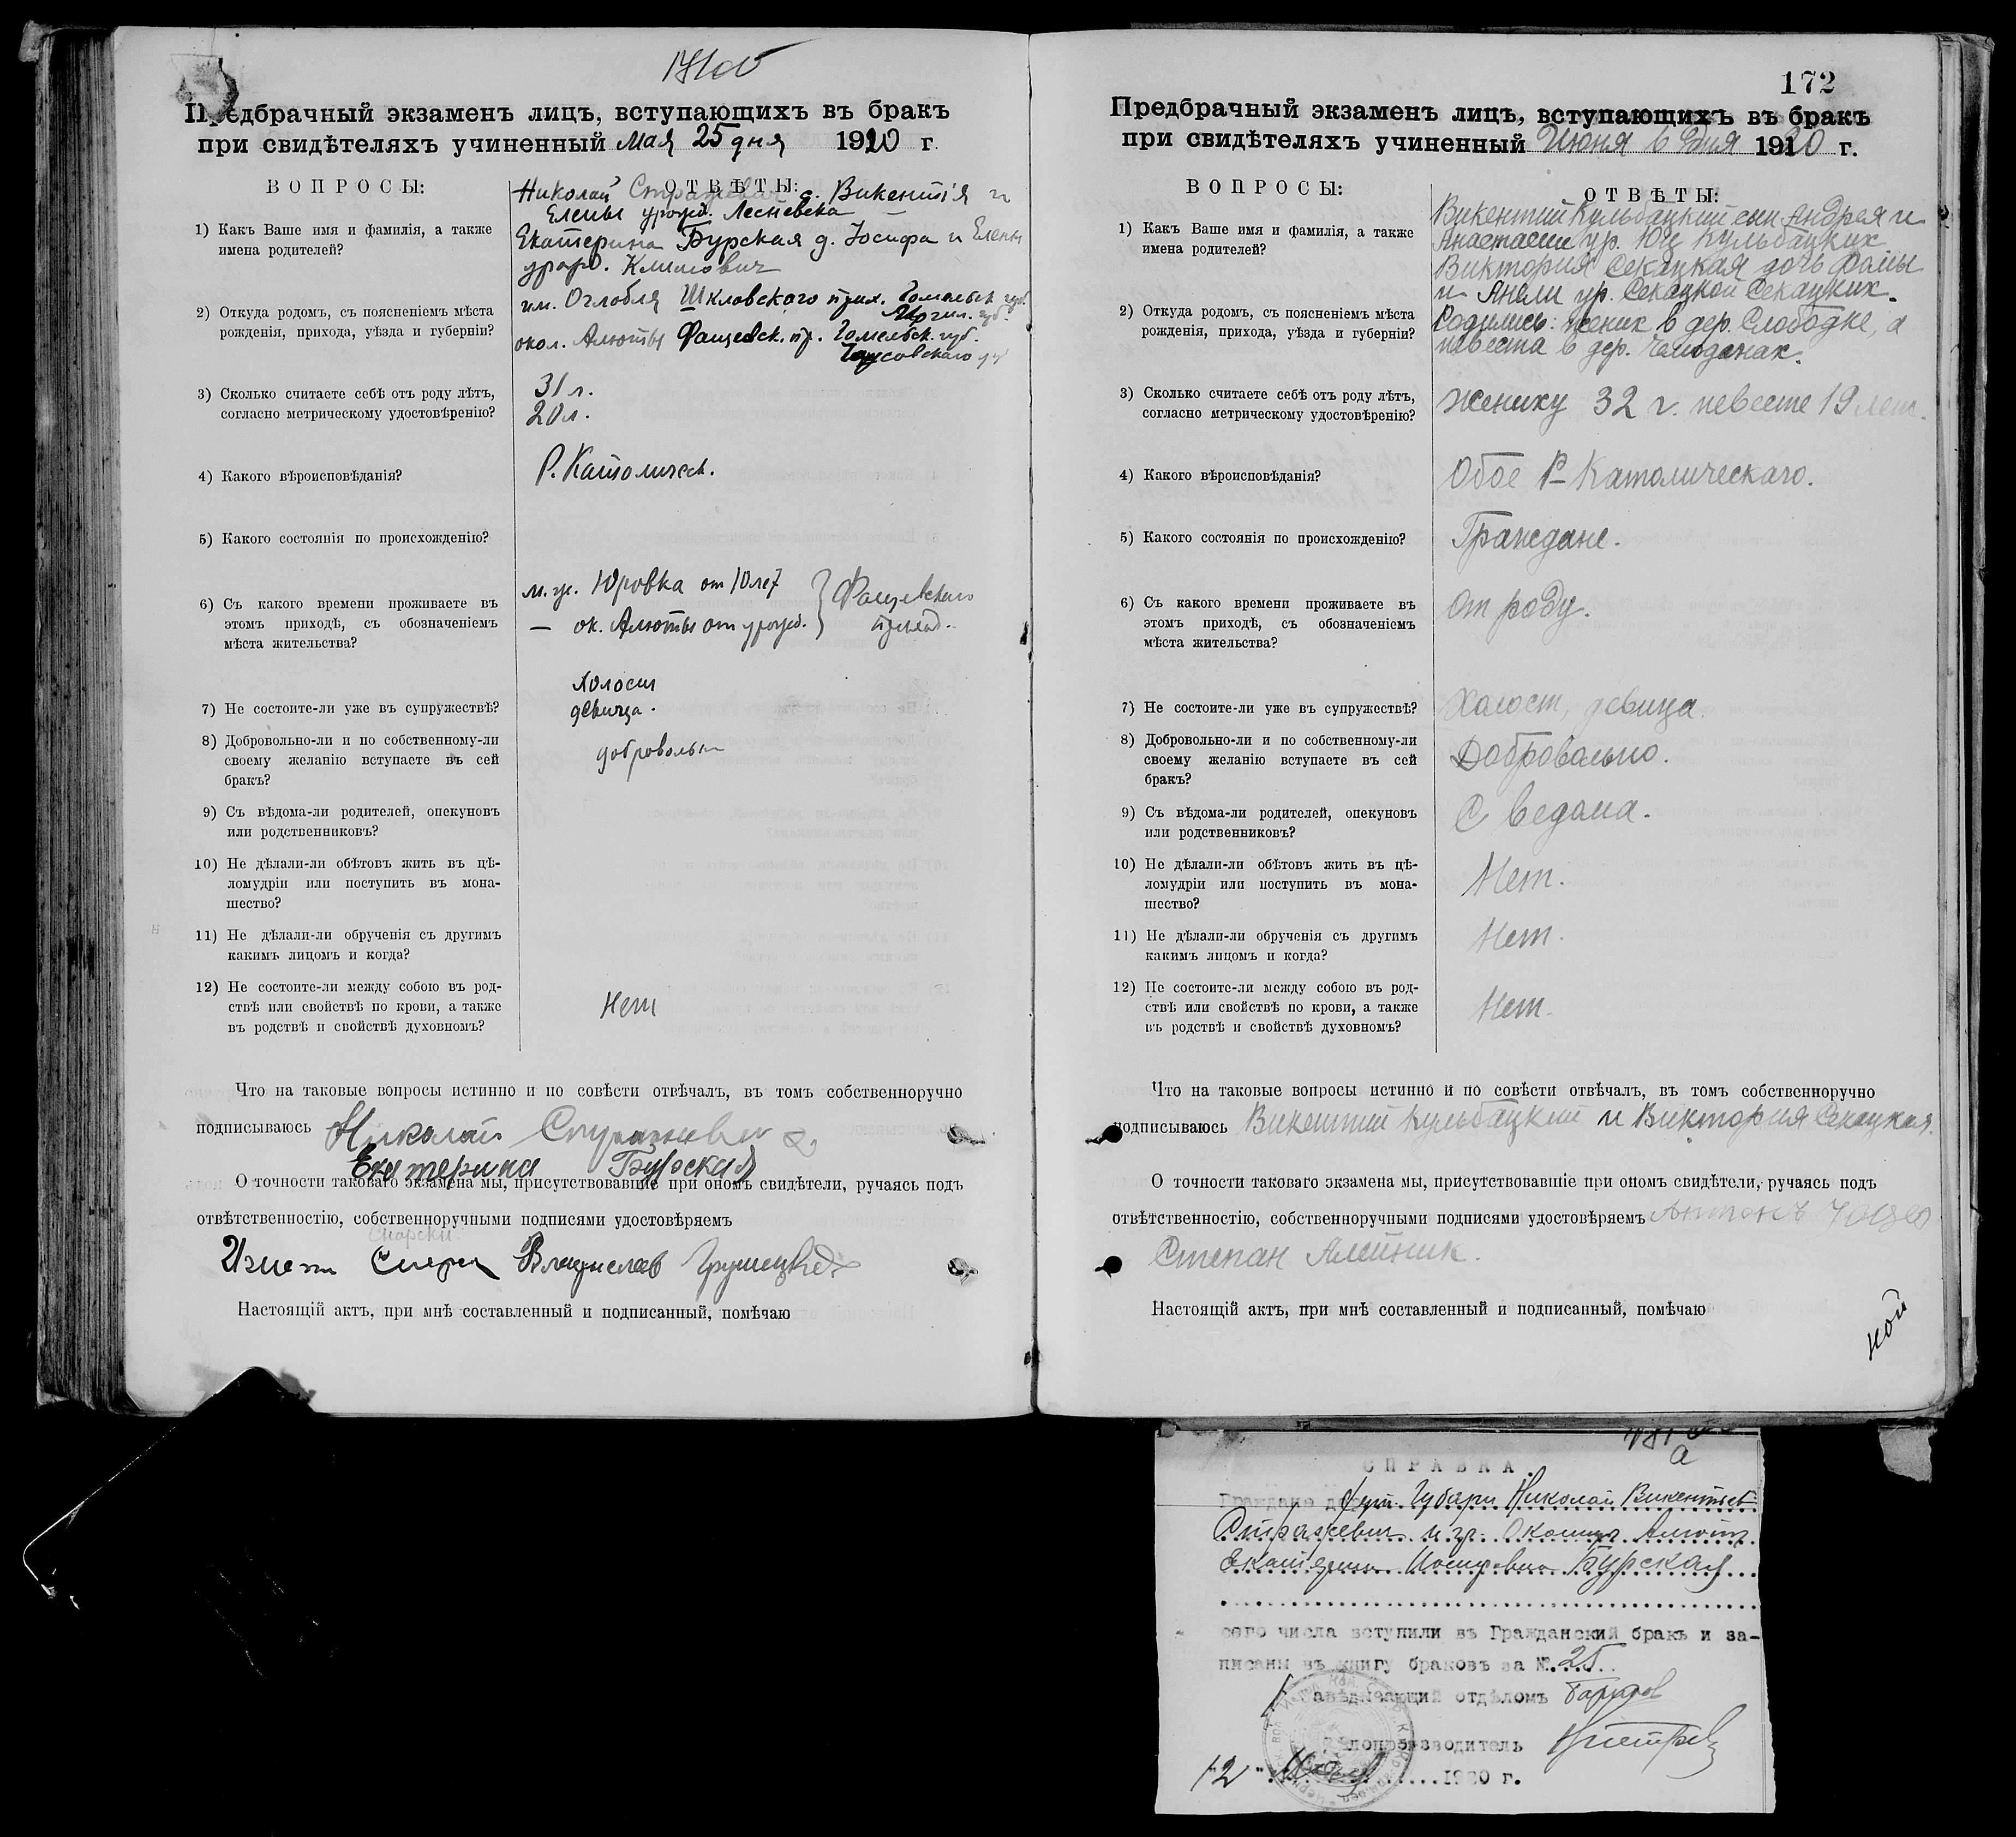 Предбрачный экзаменъ лицъ, вступающихъ въ бракъ
при свидѣтеляхъ учиненный Мая 25 дня 1920 г.
ВОПРОСЫ:
ОТВѢТЫ:
1) Какъ Ваше имя и фамилія, а также
имена родителей?
Николай с. Викентія и
Елены урожд. Лесневска
Екатерина Бурская д. Іосифа и Елены
урожд. Климович
2) Откуда родомъ, съ поясненіемъ мѣста
рожденія, прихода, уѣзда и губерніи?
им. Оглобля Шкловского прих. Гомельск. губ.
окол. Алюты Фащевск. пр. Гомельск. губ.
3) Сколько считаете себѣ отъ роду лѣтъ,
согласно метрическому удостовѣренію?
31 л.
20 л.
4) Какого вѣроисповѣданія?
Р. Католическ.
5) Какого состоянія по происхожденію?
6) Съ какого времени проживаете въ
этомъ приходѣ, съ обозначеніемъ
мѣста жительства?
Юровка от 10 лет
— ок. Алюты от урожд.
Фащевского
7) Не состоите-ли уже въ супружествѣ?
девица.
8) Добровольно-ли и по собственному-ли
своему желанію вступаете въ сей
бракъ?
добровольно
9) Съ вѣдома-ли родителей, опекуновъ
или родственниковъ?
10) Не дѣлали-ли обѣтовъ жить въ цѣ-
ломудріи или поступить въ мона-
шество?
11) Не дѣлали-ли обрученія съ другимъ
какимъ лицомъ и когда?
12) Не состоите-ли между собою въ род-
ствѣ или свойствѣ по крови, а также
въ родствѣ и свойствѣ духовномъ?
Нет
Что на таковые вопросы истинно и по совѣсти отвѣчалъ, въ томъ собственноручно
подписываюсь Николай
Екатерина Бурская
О точности таковаго экзамена мы, присутствовавшіе при ономъ свидѣтели, ручаясь подъ
отвѣтственностію, собственноручными подписями удостовѣряемъ
Владислав
Настоящій актъ, при мнѣ составленный и подписанный, помѣчаю
172
Предбрачный экзаменъ лицъ, вступающихъ въ бракъ
при свидѣтеляхъ учиненный Июня 6 дня 1920 г.
ВОПРОСЫ:
ОТВѢТЫ:
1) Какъ Ваше имя и фамилія, а также
имена родителей?
Викентий Кульбацкий сын Андрея и
Анастасии ур. Кульбацких
Виктория Секацкая дочь Фомы
и Анели ур. Секацкой Секацких.
2) Откуда родомъ, съ поясненіемъ мѣста
рожденія, прихода, уѣзда и губерніи?
Родились: жених в дер. Слободке, а
невеста в дер. Чемоданах.
3) Сколько считаете себѣ отъ роду лѣтъ,
согласно метрическому удостовѣренію?
Жениху 32 г. невесте 19 лет.
4) Какого вѣроисповѣданія?
Обое Р-Католическаго.
5) Какого состоянія по происхожденію?
Граждане.
6) Съ какого времени проживаете въ
этомъ приходѣ, съ обозначеніемъ
мѣста жительства?
От роду.
7) Не состоите-ли уже въ супружествѣ?
Холост, девица
8) Добровольно-ли и по собственному-ли
своему желанію вступаете въ сей
бракъ?
Добровольно.
9) Съ вѣдома-ли родителей, опекуновъ
или родственниковъ?
С ведома.
10) Не дѣлали-ли обѣтовъ жить въ цѣ-
ломудріи или поступить въ мона-
шество?
Нет.
11) Не дѣлали-ли обрученія съ другимъ
какимъ лицомъ и когда?
Нет.
12) Не состоите-ли между собою въ род-
ствѣ или свойствѣ по крови, а также
въ родствѣ и свойствѣ духовномъ?
Нет.
Что на таковые вопросы истинно и по совѣсти отвѣчалъ, въ томъ собственноручно
подписываюсь Викентий Кульбацкий и Виктория Секацкая.
О точности таковаго экзамена мы, присутствовавшіе при ономъ свидѣтели, ручаясь подъ
отвѣтственностію, собственноручными подписями удостовѣряемъ Антонъ
Степан Алейник.
Настоящій актъ, при мнѣ составленный и подписанный, помѣчаю
ной
СПРАВКА.
Граждане Губари Николай Викентьев
Стражевич и гр. Алюты
Екатерина Иосифовна Бурская
сего числа вступили въ Гражданский бракъ и за-
писаны въ книгу браковъ за № 25
Завѣдывающий отдѣломъ
Дѣлопроизводитель
"12" Мая 1920 г.